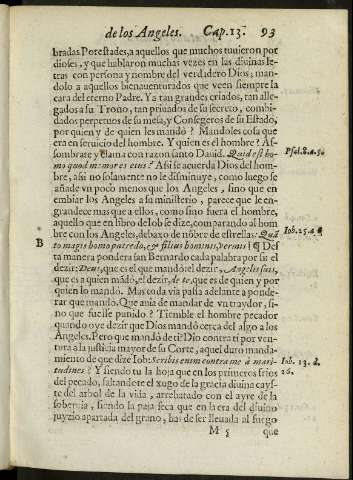 de los Angeles. Cap. 13. 93
bradas Potestades, a aquellos que muchos tuuieron por
dioses, y que hablaron muchas vezes en las diuinas le-
tras con persona y nombre del verdadero Dios; man-
dolo a aquellos bienauenturados que veen siempre la
cara del eterno Padre. Ya tan grandes criados, tan alle-
gados a su Trono, tan priuados de su secreto, combi-
dados perpetuos de su mesa, y Consegeros de su Estado,
por quien y de quien les mandò? Mandoles cosa que
era en seruicio del hombre. Y quien es el hombre? As-
sombrate y clama con razon santo Dauid. Quid est ho-
mo quod memor es eius? Assi se acuerda Dios del hom-
bre, assi no solamente no le disminuye, como luego se
añade vn poco menos que los Angeles, sino que en
embiar los Angeles a su ministerio, parece que le en-
grandece mas que a ellos, como sino fuera el hombre,
aquello que en libro de Iob se dize, comparando al hom
bre con los Angeles, debaxo de nõbre de estrellas: Quã
to magis homo putredo, & filius hominis, vermis? ¶ Des
ta manera pondera san Bernardo cada palabra por si: el
dezir, Deus, que es el que mandò: el dezir, Angelis suis,
que es a quien mãdò, el dezir, de te, que es de quien y por
quien lo mandò. Mas toda via passa adelante a ponde-
rar que mandò. Que auia de mandar de vn traydor, si-
no que fuesse punido? Tiemble el hombre pecador
quando oye dezir que Dios mandò cerca del algo a los
Angeles. Pero que mandò de ti? Dio contra ti por ven-
tura a la justicia mayor de su Corte, aquel duro manda-
miento de que dize Iob: Scribis enim contra me amari-
tudines? Y siendo tu la hoja que en los primeros frios
del pecado, saltandote el xugo de la gracia diuina cays-
te del arbol de la vida, arrebatado con el ayre de la
soberuia, siendo la paja seca que en la era del diuino
juyzio apartada del grano, has de ser lleuada al fuego
M 5 que
Psal. 8. a. 5.
Iob. 25. a. 6
B
Iob. 13. d.
26.